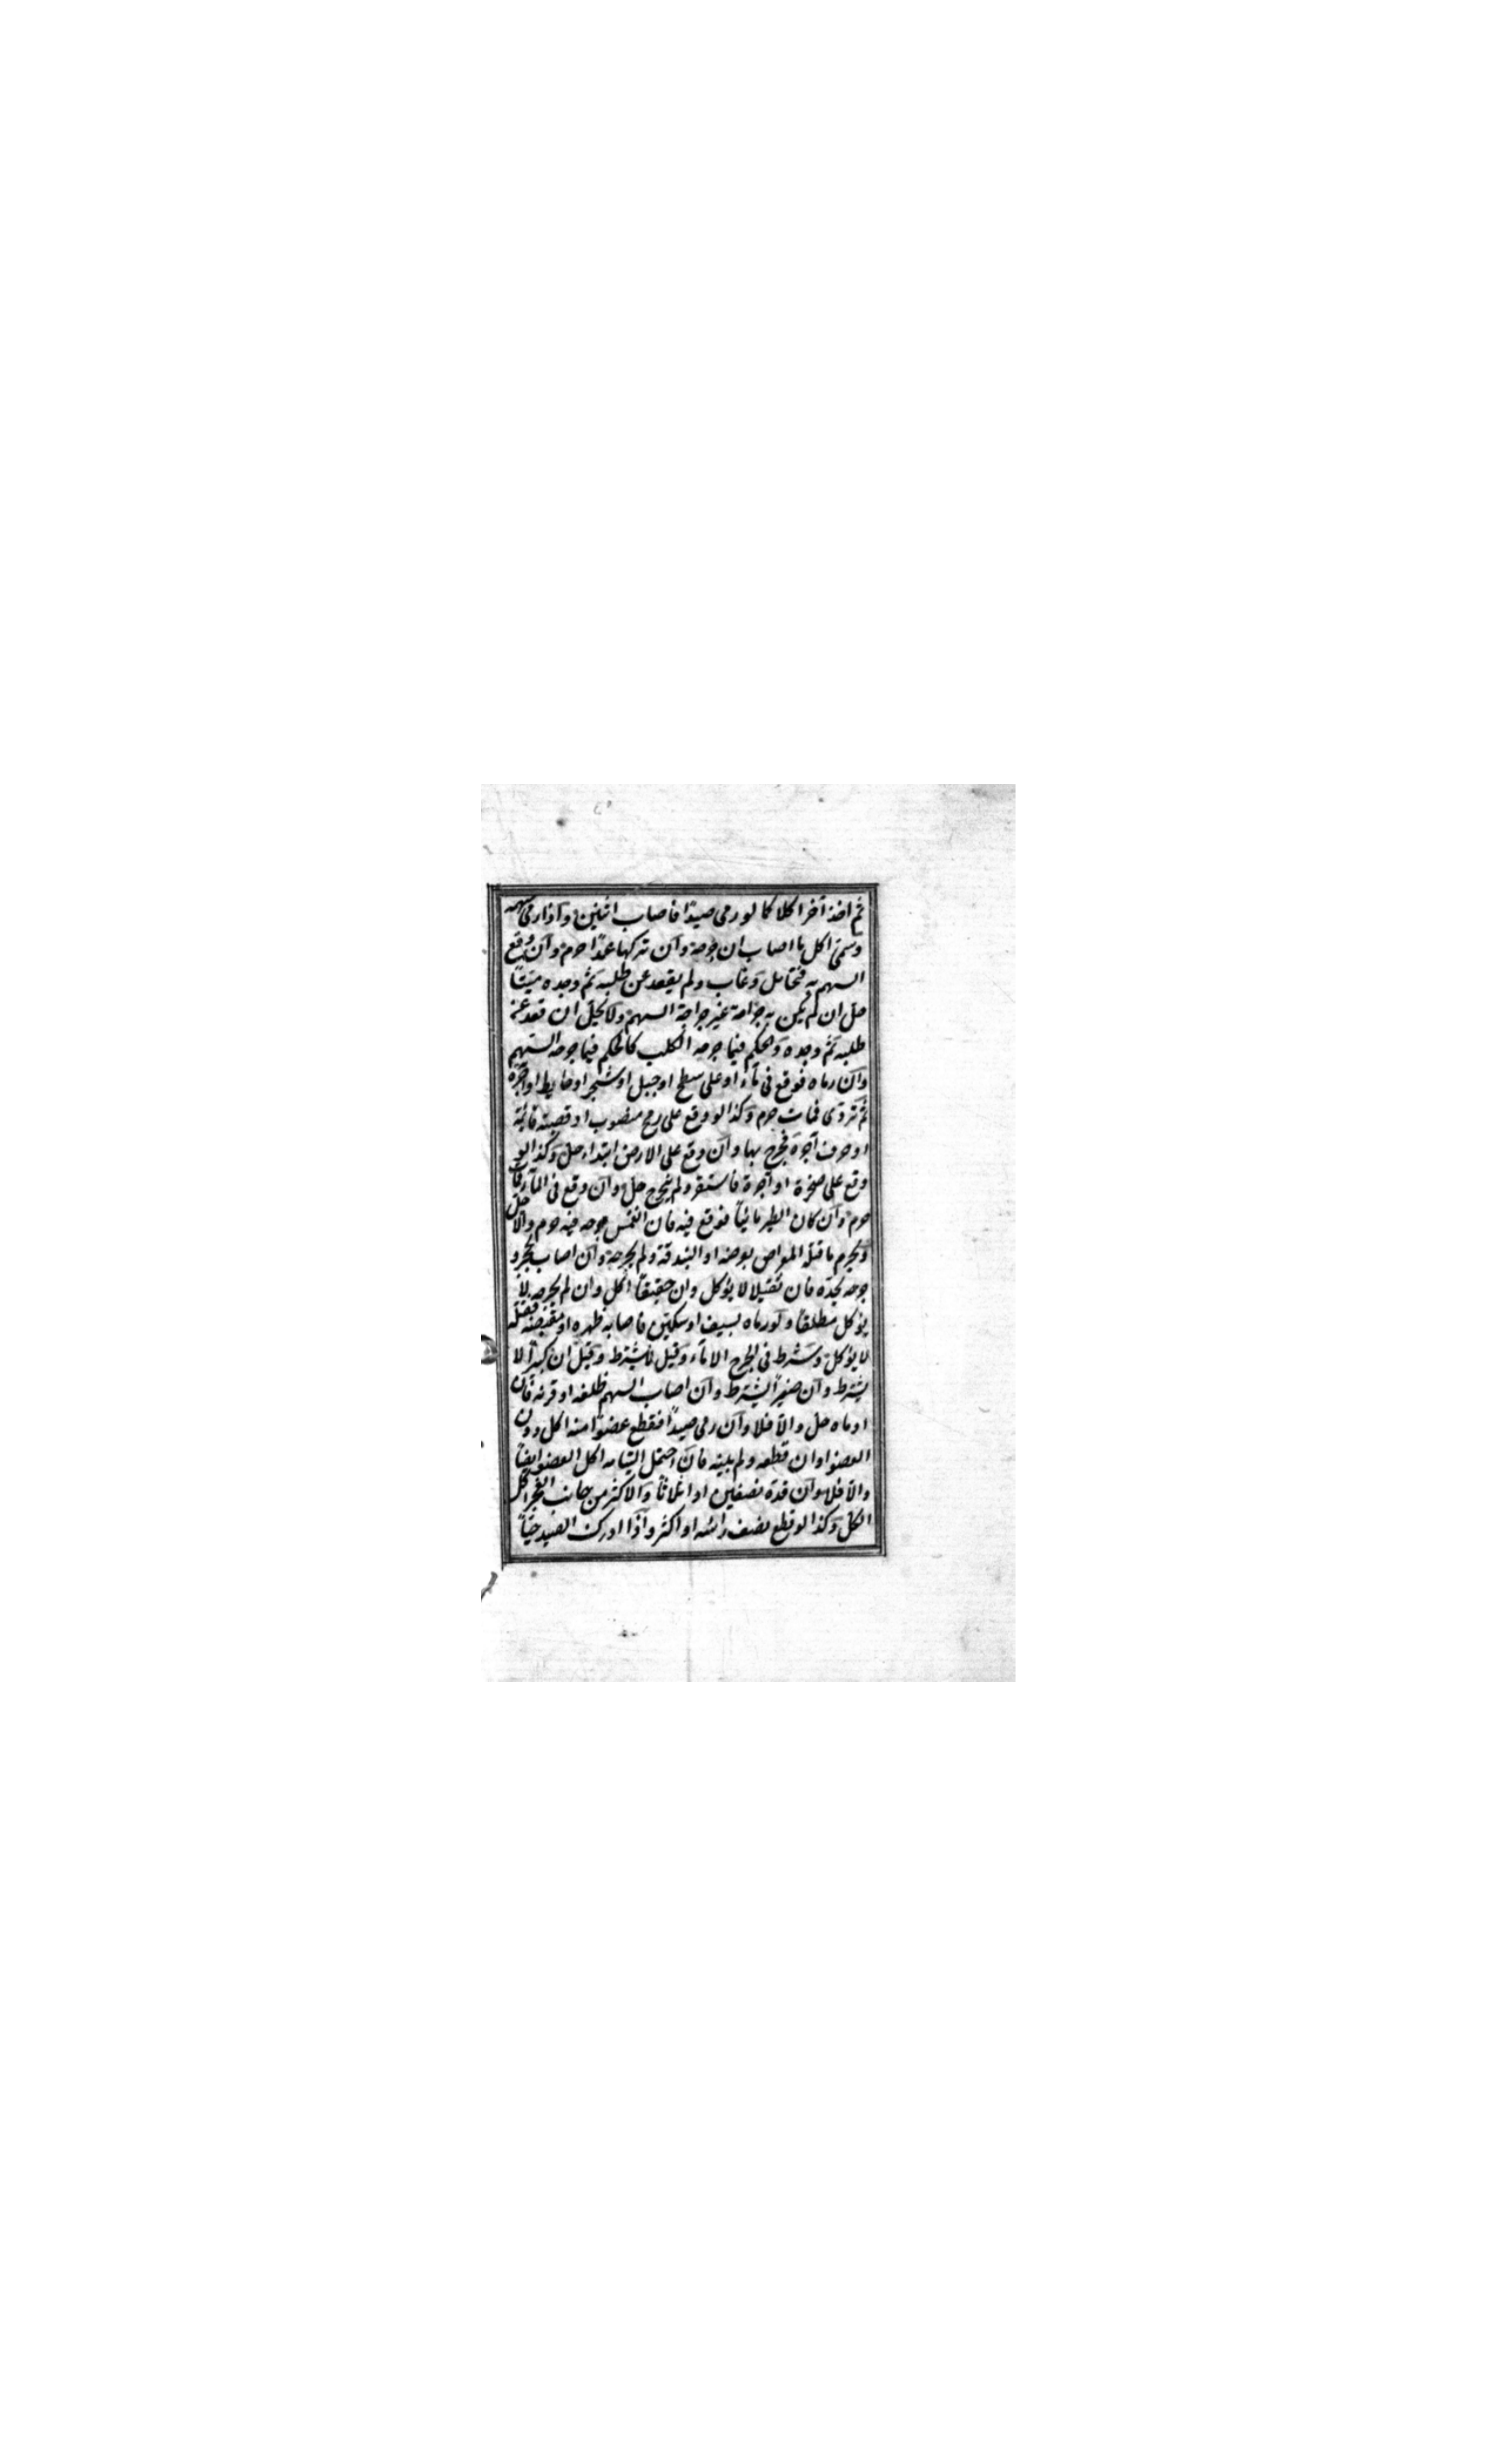 ثم اخذ آخر اكلا كما لو رمى صيدًا فاصاب اثنين وآذا رمى سهمه
وسمّى اكل ما اصاب ان جرحه وآن تركها عمدًا حرم وآن وقع
السهم به فتحامل وغاب ولم يقعد عن طلبه ثم وجده ميتًا
حل ان لم يكن به جراحة غير جراحة السهم ولا يحلّ ان قعد عن
طلبه ثم وجده والحكم فيما جرحه الكلب كالحكم فيما جرحه السهم
وآن رماه فوقع فى مآء او على سطح او جبل او شجر او حايط او آجرة
ثم تردى فمات حرم وكذا لو وقع على رمح منصوب او قصبة قايمة
او حرف آجرة فجرح بها وآن وقع على الارض ابتداء حل وكذا لو
وقع على صخرة او آجرة فاستقر ولم ينجرح حل وآن وقع فى المآء
حرم وآن كان الطير مائيًا فوقع فيه فان انغمس جرحه فيه حرم والّا حل
ويحرم ما قتله المعراض بعرضه او البندقة ولم يجرحه وآن اصاب بحجر و
جرحه بحدّه فان ثقيلا لا يؤكل وان خفيفًا اكل وان لم يجرحه لا
يؤكل مطلقًا ولو رماه بسيف او سكين فاصابه ظهره او مقبضه فقتله
لا يؤكل وشرط فى الجرح الادمآء وقيل لا يشترط وقيل ان كبيرًا لا
يشترط وآن صغيرًا يشترط وآن اصاب السهم ظلفه او قرنه فآن
ادماه حل والّا فلا وآن رمى صيدًا فقطع عضوًا منه اكل دون
العضو وان قطعه ولم يبنه فان احتمل التيامه اكل العضو ايضًا
والّا فلا وآن قدّه نصفين او اثلاثًا والاكثر من جانب العجز اكل
الكلّ وكذا لو قطع نصف راسه او اكثر وآذا ادرك الصيد حيًّا